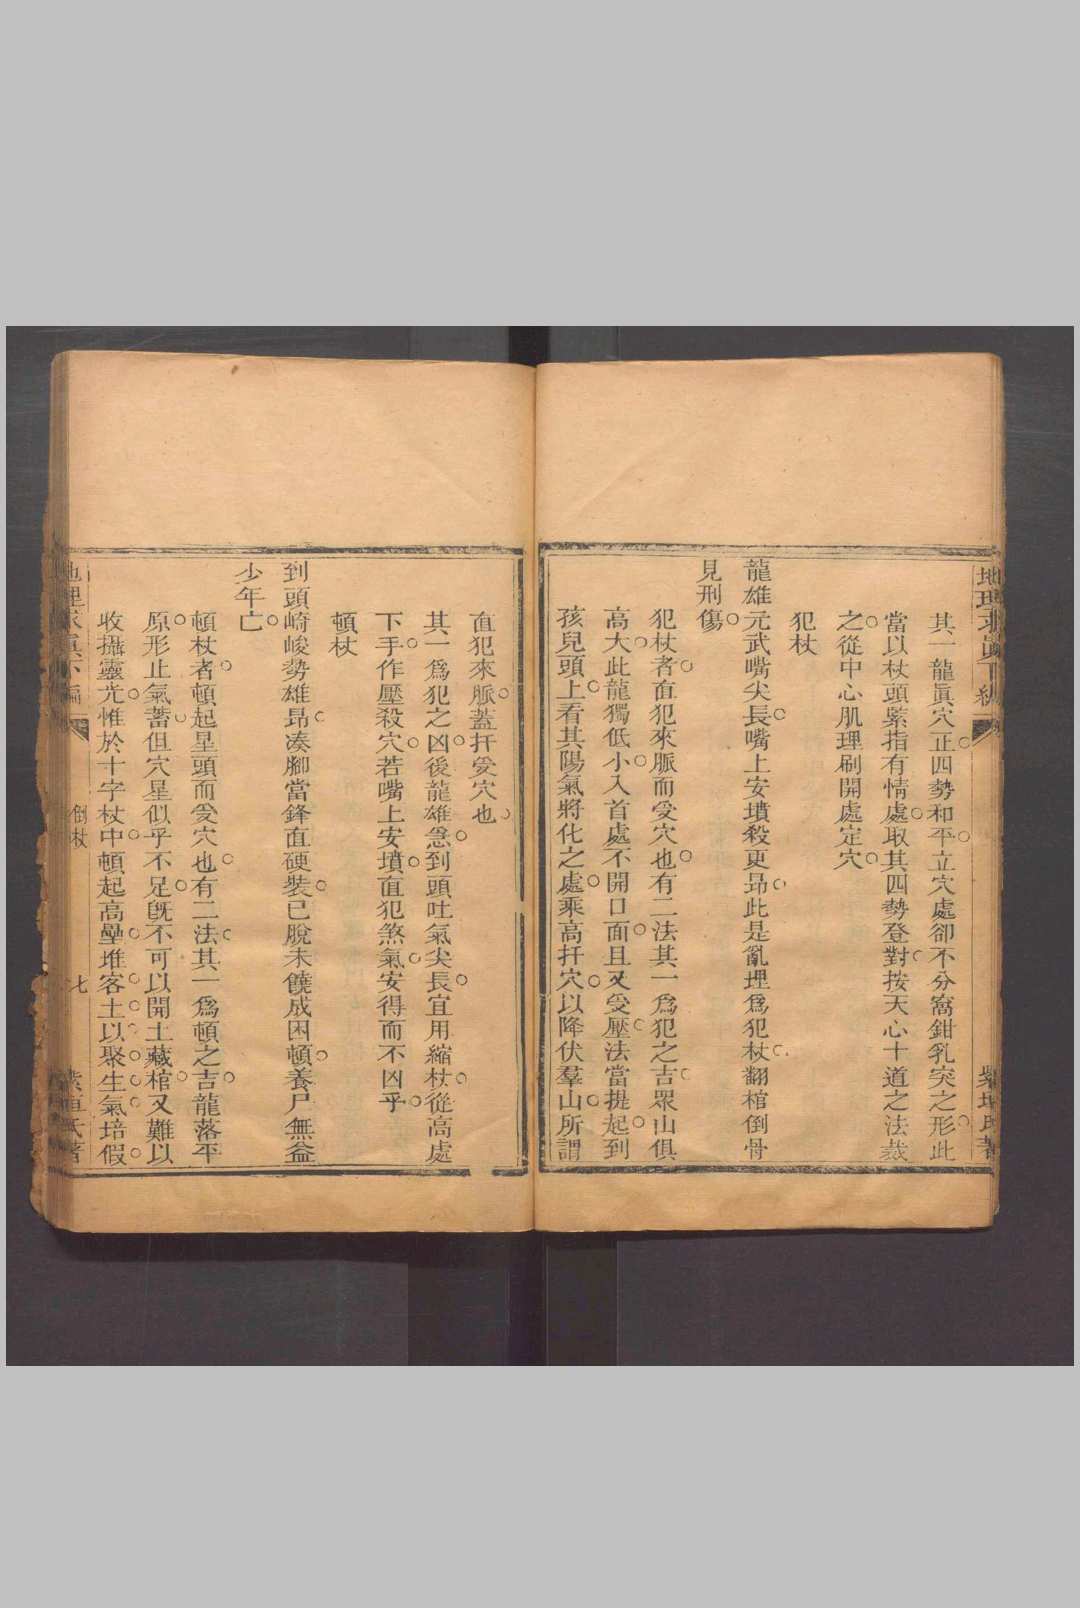 地理求眞下編
紫垣氏著
其一龍眞穴正四勢和平立穴處卻不分窩鉗乳突之形此
當以杖頭緊指有情處取其四勢登對按天心十道之法裁
之從中心肌理刷開處定穴
犯杖
龍雄元武嘴尖長嘴上安墳殺更昂此是亂埋爲犯杖翻棺倒骨
見刑傷
犯杖者直犯來脈而受穴也有二法其一爲犯之吉眾山俱
高大此龍獨低小入首處不開口面且又受壓法當提起到
孩兒頭上看其陽氣將化之處乘高扦穴以降伏羣山所謂
直犯來脈蓋扦受穴也
其一爲犯之凶後龍雄急到頭吐氣尖長宜用縮杖從高處
下手作壓殺穴若嘴上安墳直犯煞氣安得而不凶乎
頓杖
到頭崎峻勢雄昂凑腳當鋒直硬裝已脫未饒成困頓養尸無益
少年亡
頓杖者頓起星頭而受穴也有二法其一爲頓之吉龍落平
原形止氣蓄但穴星似乎不足旣不可以開土藏棺又難以
收攝靈光惟於十字杖中頓起高壘堆客土以聚生氣培假
地理求眞下編
倒杖
七
紫垣氏著